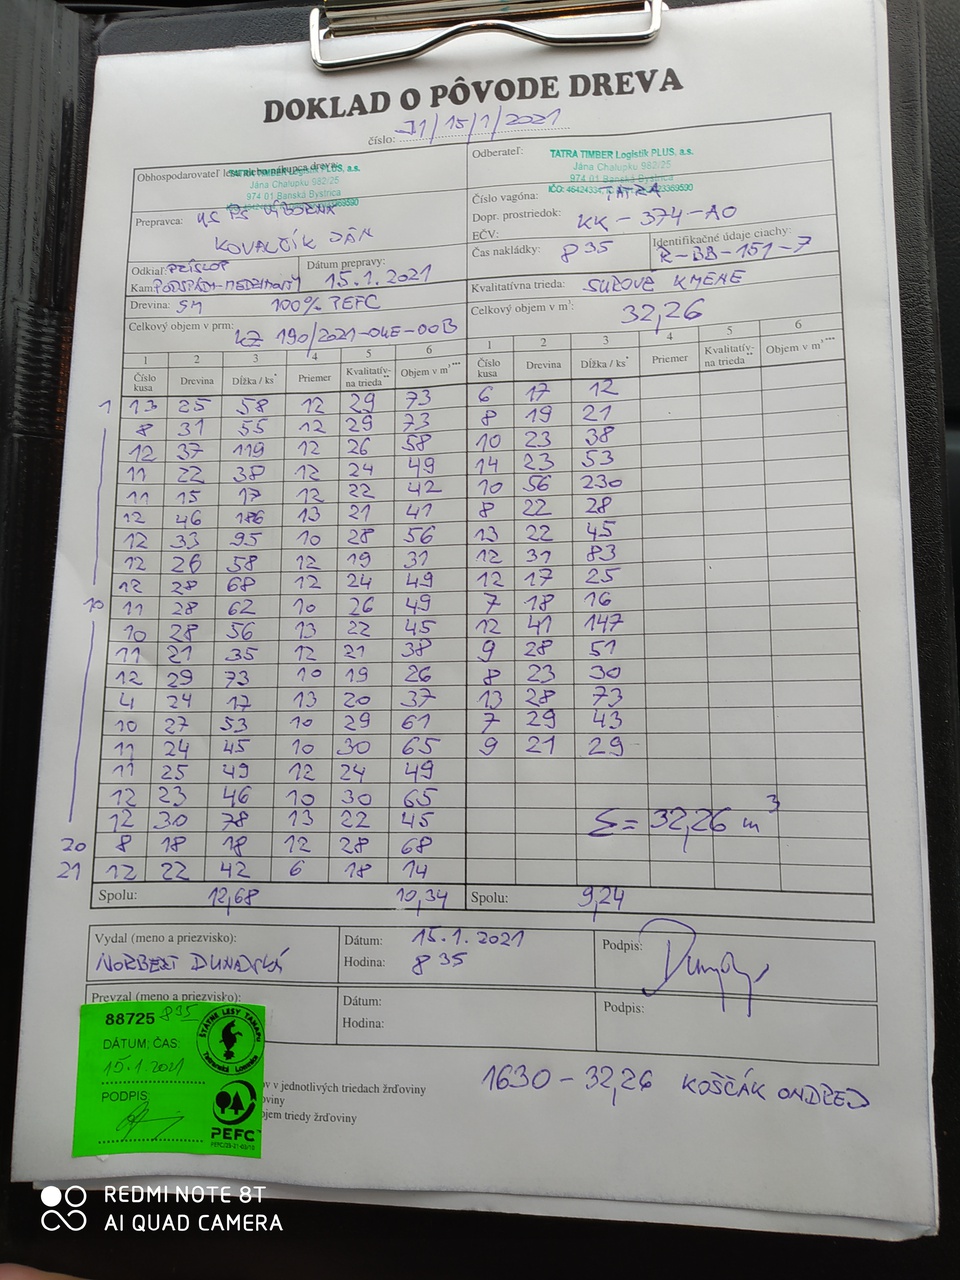 DOKLAD O PÔVODE DREVA
číslo: J1/15/1/2021
Obhospodarovateľ
TATRA TIMBER Logistik PLUS, a.s.
Jána Chalupku 982/25
974 01 Banská Bystrica
Odberateľ:
TATRA TIMBER Logistik PLUS, a.s.
Jána Chalupku 982/25
974 01 Banská Bystrica
Prepravca: US PS VÝBORNÁ
KOVALČÍK JÁN
Číslo vagóna: TATRA
Dopr. prostriedok:
EČV: KK-374-AO
Čas nakládky: 8 35
Identifikačné údaje ciachy:
R-BB-151-7
Odkiaľ: PRÍSLOP
Kam:
Dátum prepravy:
15.1.2021
Kvalitatívna trieda: SUROVÉ KMENE
Drevina: SM 100% PEFC
Celkový objem v prm: LZ 190/2021-04E-00B
Celkový objem v m³: 32,26
1 2 3 4 5 6 1 2 3 4 5 6
Číslo kusa Drevina Dĺžka / ks* Priemer Kvalitatív-na trieda** Objem v m³*** Číslo kusa Drevina Dĺžka / ks* Priemer Kvalitatív-na trieda** Objem v m³***
1 13 25 58 12 29 73 6 17 12
8 31 55 12 29 73 8 19 21
12 37 119 12 26 58 10 23 38
11 22 38 12 24 49 14 23 53
11 15 17 12 22 42 10 56 230
12 46 186 13 21 41 8 22 28
12 33 95 10 28 56 13 22 45
12 26 58 12 19 31 12 31 83
12 28 68 12 24 49 12 17 25
10 11 28 62 10 26 49 7 18 16
10 28 56 13 22 45 12 41 147
11 21 35 12 21 38 9 28 51
12 29 73 10 19 26 8 23 30
4 24 17 13 20 37 13 28 73
10 27 53 10 29 61 7 29 43
11 24 45 10 30 65 9 21 29
11 25 49 12 24 49
12 23 46 10 30 65
12 30 78 13 22 45 Σ= 32,26 m³
20 8 18 18 12 28 68
21 12 22 42 6 18 14
Spolu: 12,68 10,34 Spolu: 9,24
Vydal (meno a priezvisko):
NORBERT DUNAJSKÁ
Dátum: 15.1.2021
Hodina: 8 35
Podpis:
Prevzal (meno a priezvisko):
Dátum:
Hodina:
Podpis:
88725 8 35
DÁTUM, ČAS:
15.1.2021
PODPIS
ŠTÁTNE LESY TANAPU
Tatranská Lomnica
PEFC
ov v jednotlivých triedach žrďoviny
oviny
ojem triedy žrďoviny
1630-32,26 KOŠČÁK ONDREJ
REDMI NOTE 8T
AI QUAD CAMERA